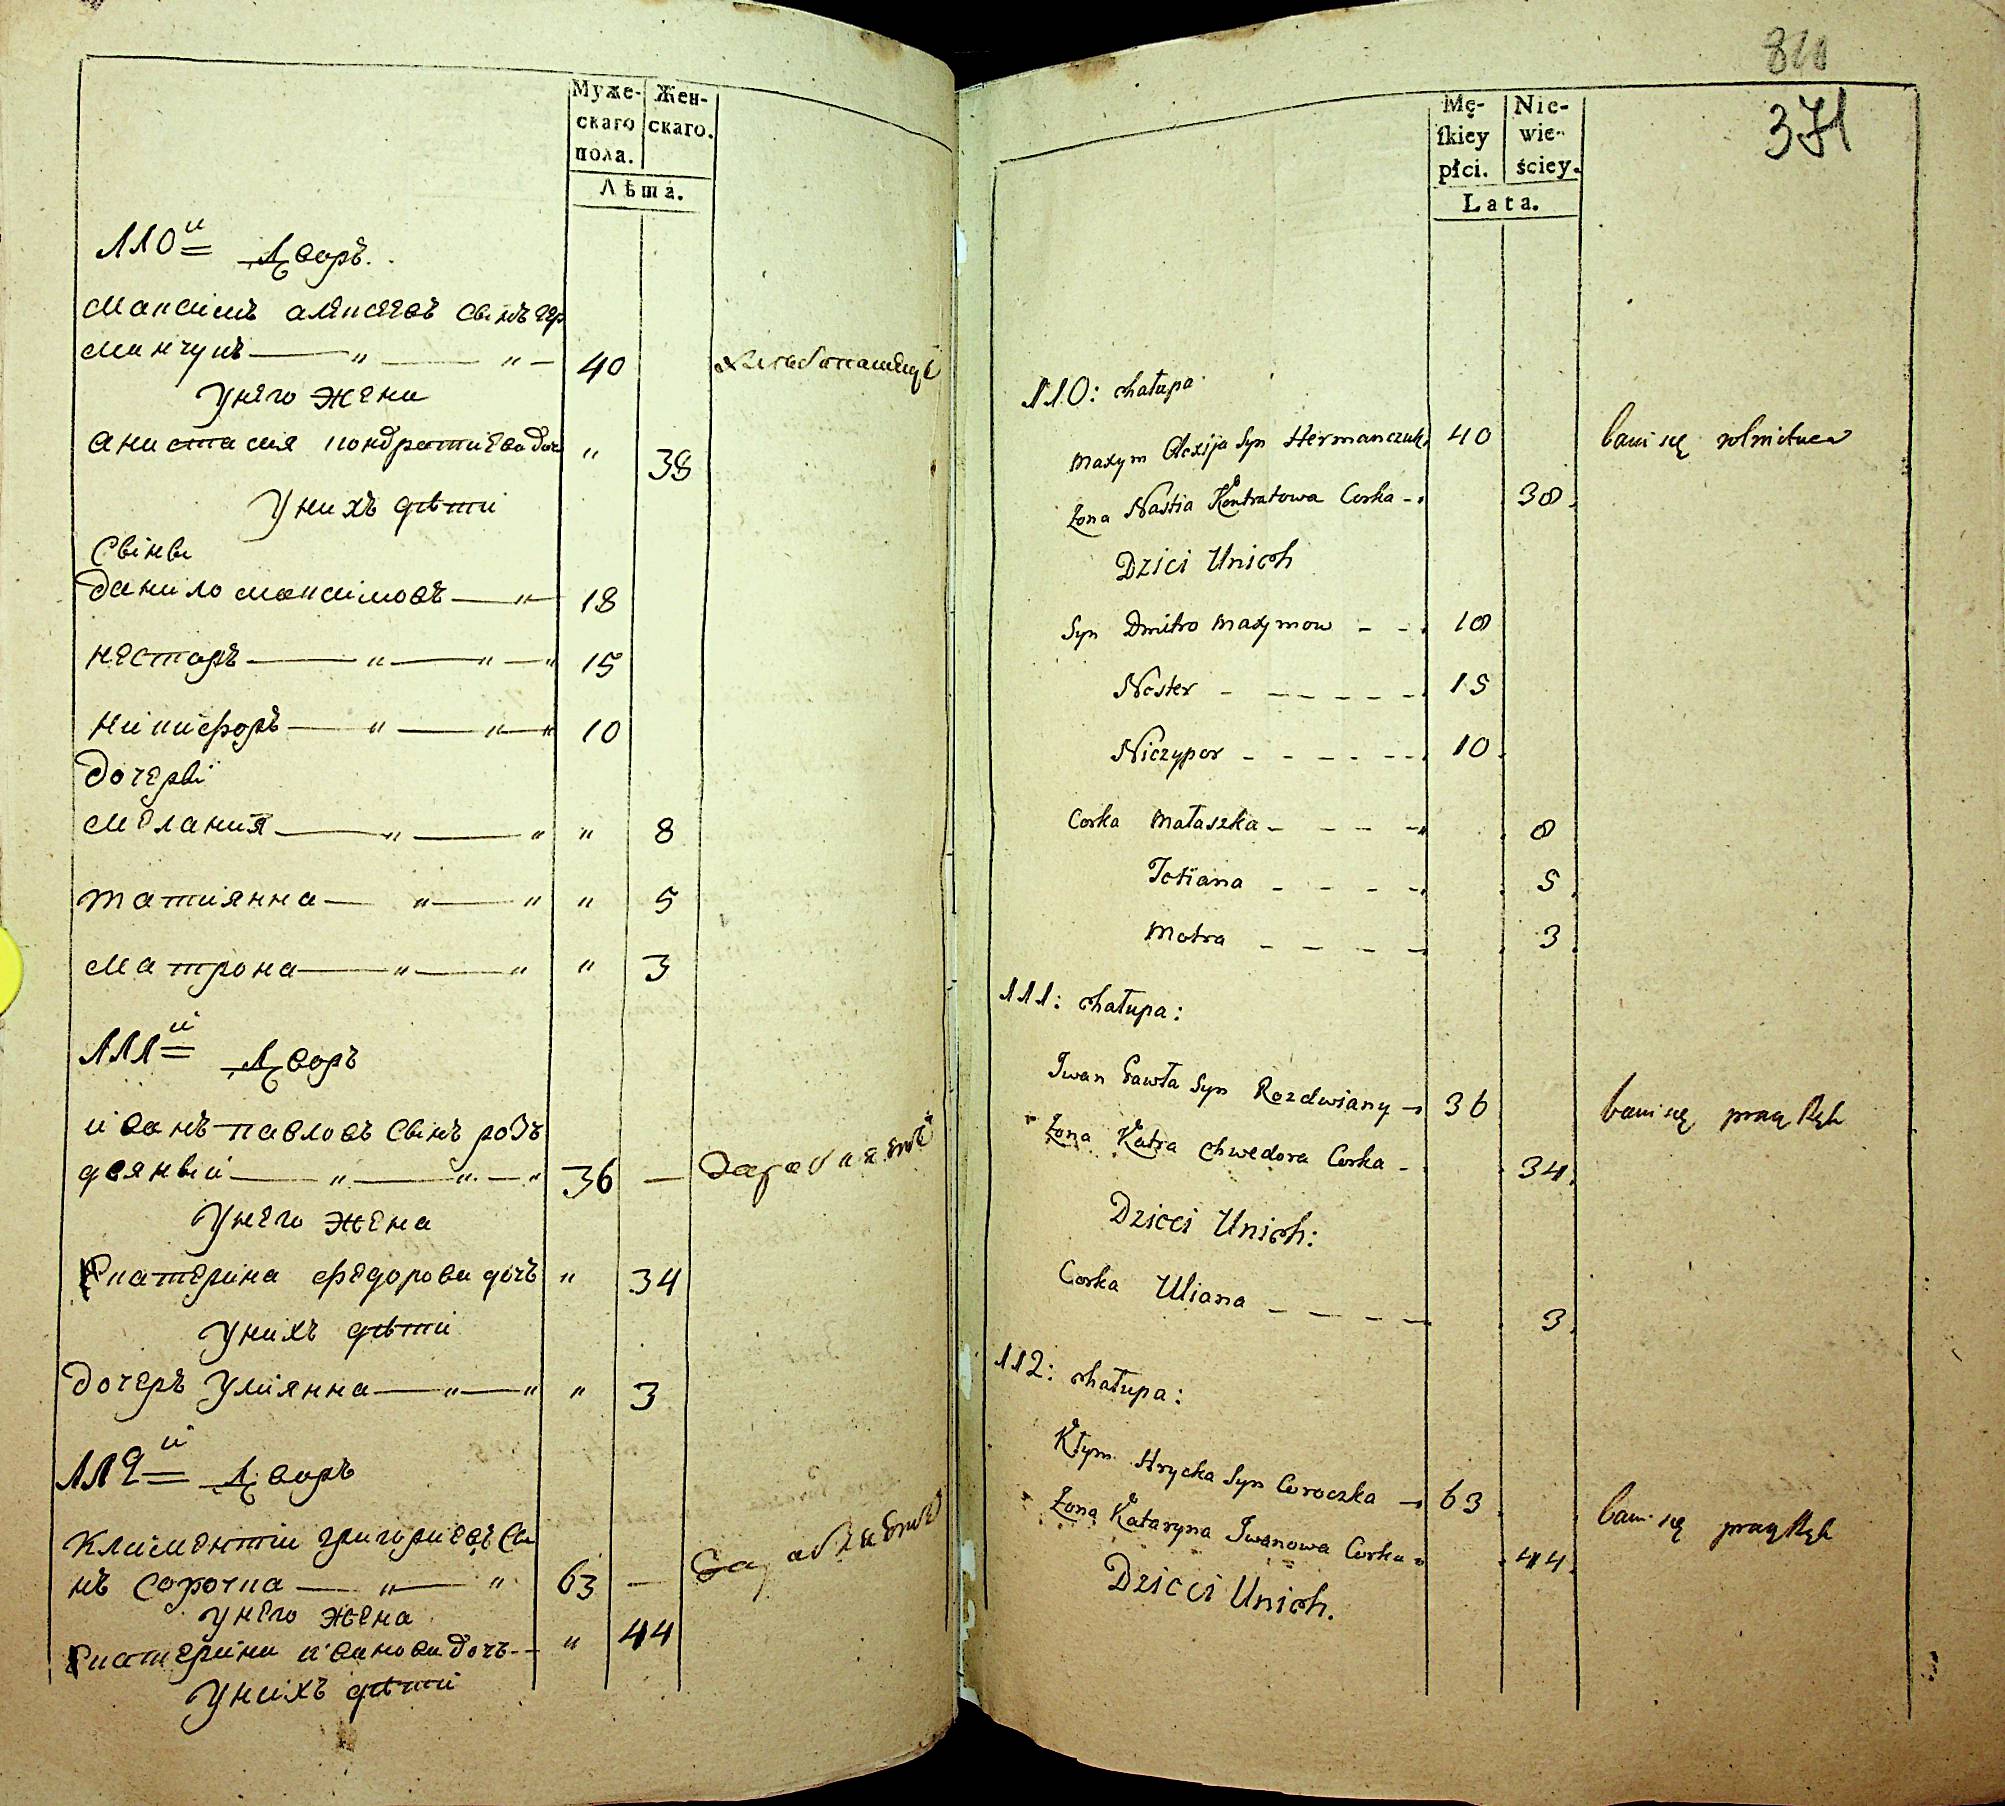 Муже-
скаго
пола.
Жен-
скаго.
Лѣта.
110й Дворъ.
Максимъ алексеевъ синъ гер
манчукъ — " — " — 40 хлебопашецъ
Унего жена
анистасия кондратиева доч " 38
Унихъ дѣти
Сыны
Данило максимовъ — " — 18
нестаръ — " — " — " 15
никифоръ — " — " — " 10
Дочеры
мелания — " — " " 8
татиянна — " — " " 5
матрона — " — " " 3
111й Дворъ
иванъ павловъ синъ роз
двяный — " — " — " 36 — Зараб
Унего жена
Екатерина федорова дочъ " 34
Унихъ дѣти
Дочеръ Улиянна — " — " " 3
112й Дворъ
Климентии григориевъ си
нъ Сорочка — " — " 63 — Зараб
унего жена
Екатерина иванова дочъ - - " 44
Унихъ дѣти
810
371
Mę-
ſkiey
płci.
Nie-
wie-
ściey.
Lata.
110: chałupa
Maxym Olexija Syn Hermanczuk 40 bawi się rolnictwem
Żona Nastia Kontratowa Corka - 38.
Dzieci Unich
Syn Dmitro Maxymow - - 18
Nester - - - - - - 15
Niczypor - - - - - - 10.
Corka Małaszka - - - - 8
Tetiana - - - - 5.
Motra - - - - 3.
111: chałupa:
Iwan Pawła Syn Rozdwiany - 36 bawi się pracą Rąk
Żona Katra Chwedora Corka - 34.
Dzieci Unich:
Corka Uliana - - - - 3.
112: chałupa:
Kłym Hrycka Syn Coroczka - 63 bawi się pracą Rąk
Żona Kataryna Iwanowa Corka - 44.
Dzieci Unich.